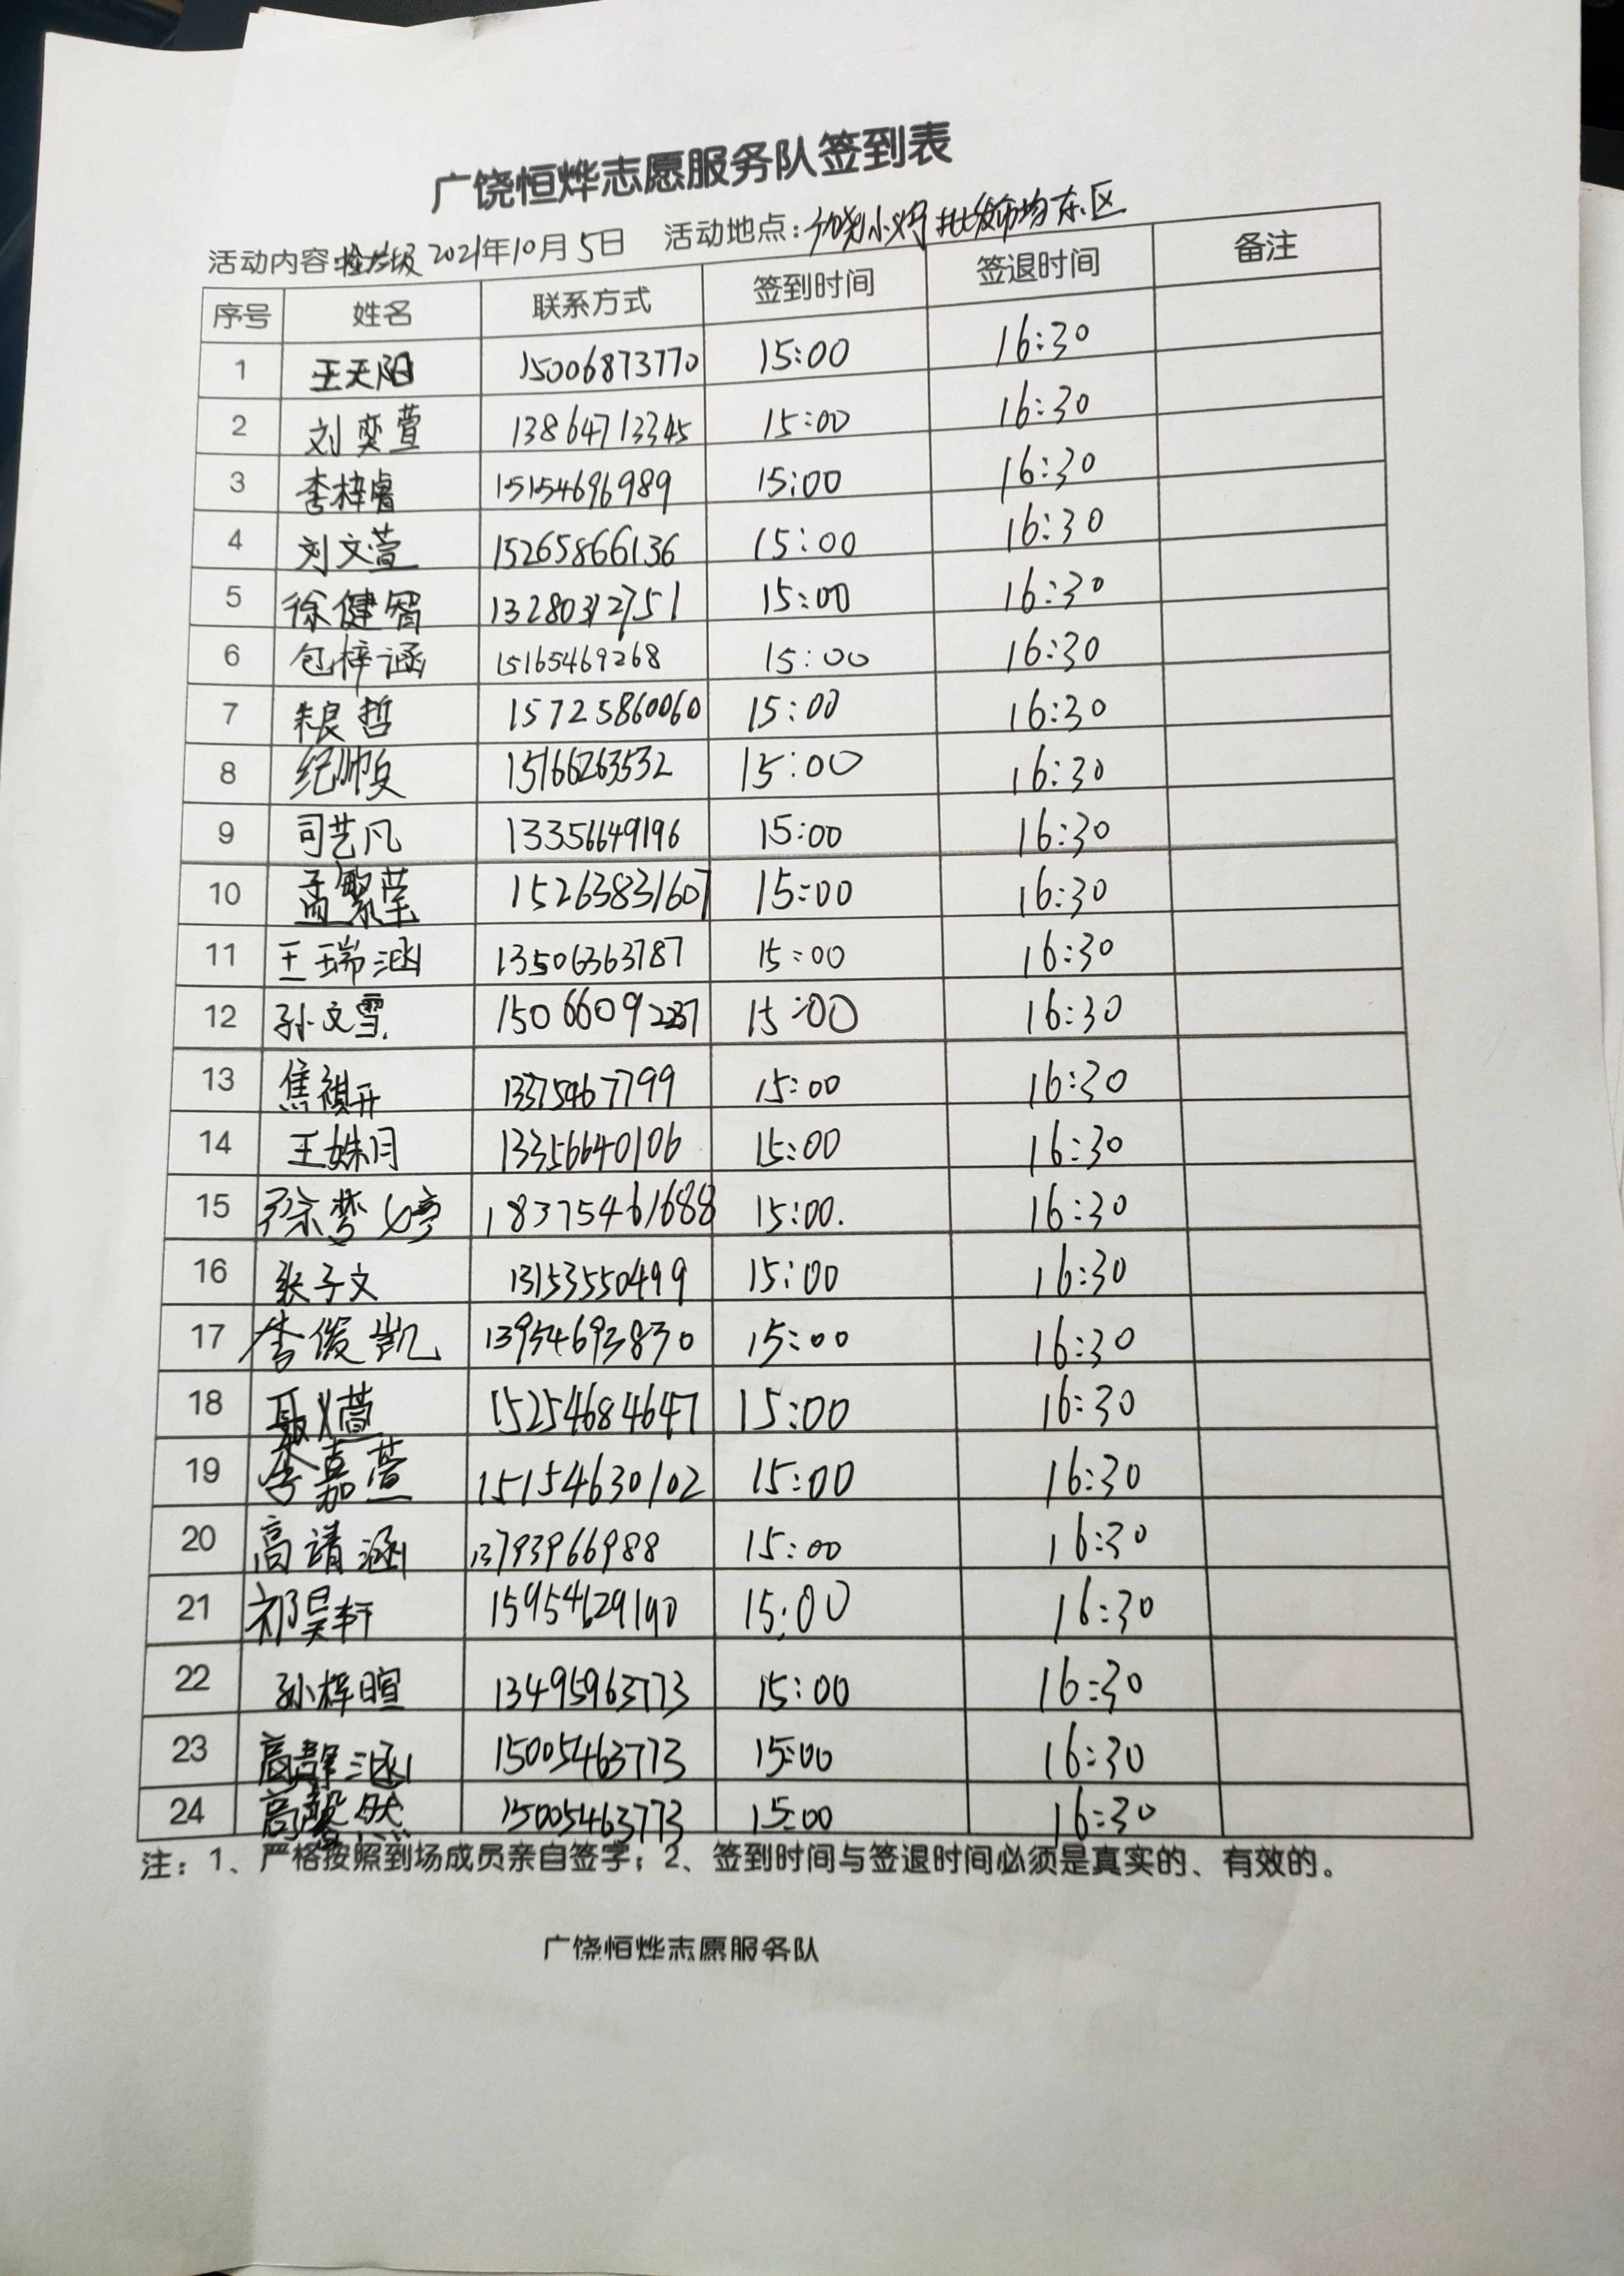 广饶恒烨志愿服务队签到表
活动内容:捡垃圾 2021年10月5日 活动地点:广饶小义乌批发市场东区
序号 姓名 联系方式 签到时间 签退时间 备注
1 王天阳 15006873770 15:00 16:30
2 刘奕萱 13864713345 15:00 16:30
3 李梓睿 15154696989 15:00 16:30
4 刘文萱 15265866136 15:00 16:30
5 徐健智 13280312751 15:00 16:30
6 包梓涵 15165469268 15:00 16:30
7 朱良哲 15725860060 15:00 16:30
8 纪帅 15166263532 15:00 16:30
9 司艺凡 13356649196 15:00 16:30
10 孟繁莹 15263831607 15:00 16:30
11 王瑞涵 13506363787 15:00 16:30
12 孙文雪 15066092237 15:00 16:30
13 焦祺开 13375467799 15:00 16:30
14 王姝月 13356640106 15:00 16:30
15 徐梦婷 18375461688 15:00. 16:30
16 张子文 13153550499 15:00 16:30
17 李俊凯 13954693830 15:00 16:30
18 聂义萱 15254684647 15:00 16:30
19 李嘉萱 15154630102 15:00 16:30
20 高靖涵 13793966988 15:00 16:30
21 祁昊轩 15954629190 15:00 16:30
22 孙梓暄 13495963773 15:00 16:30
23 高静涵 15005463773 15:00 16:30
24 高馨然 15005463773 15:00 16:30
注:1、严格按照到场成员亲自签字;2、签到时间与签退时间必须是真实的、有效的。
广饶恒烨志愿服务队